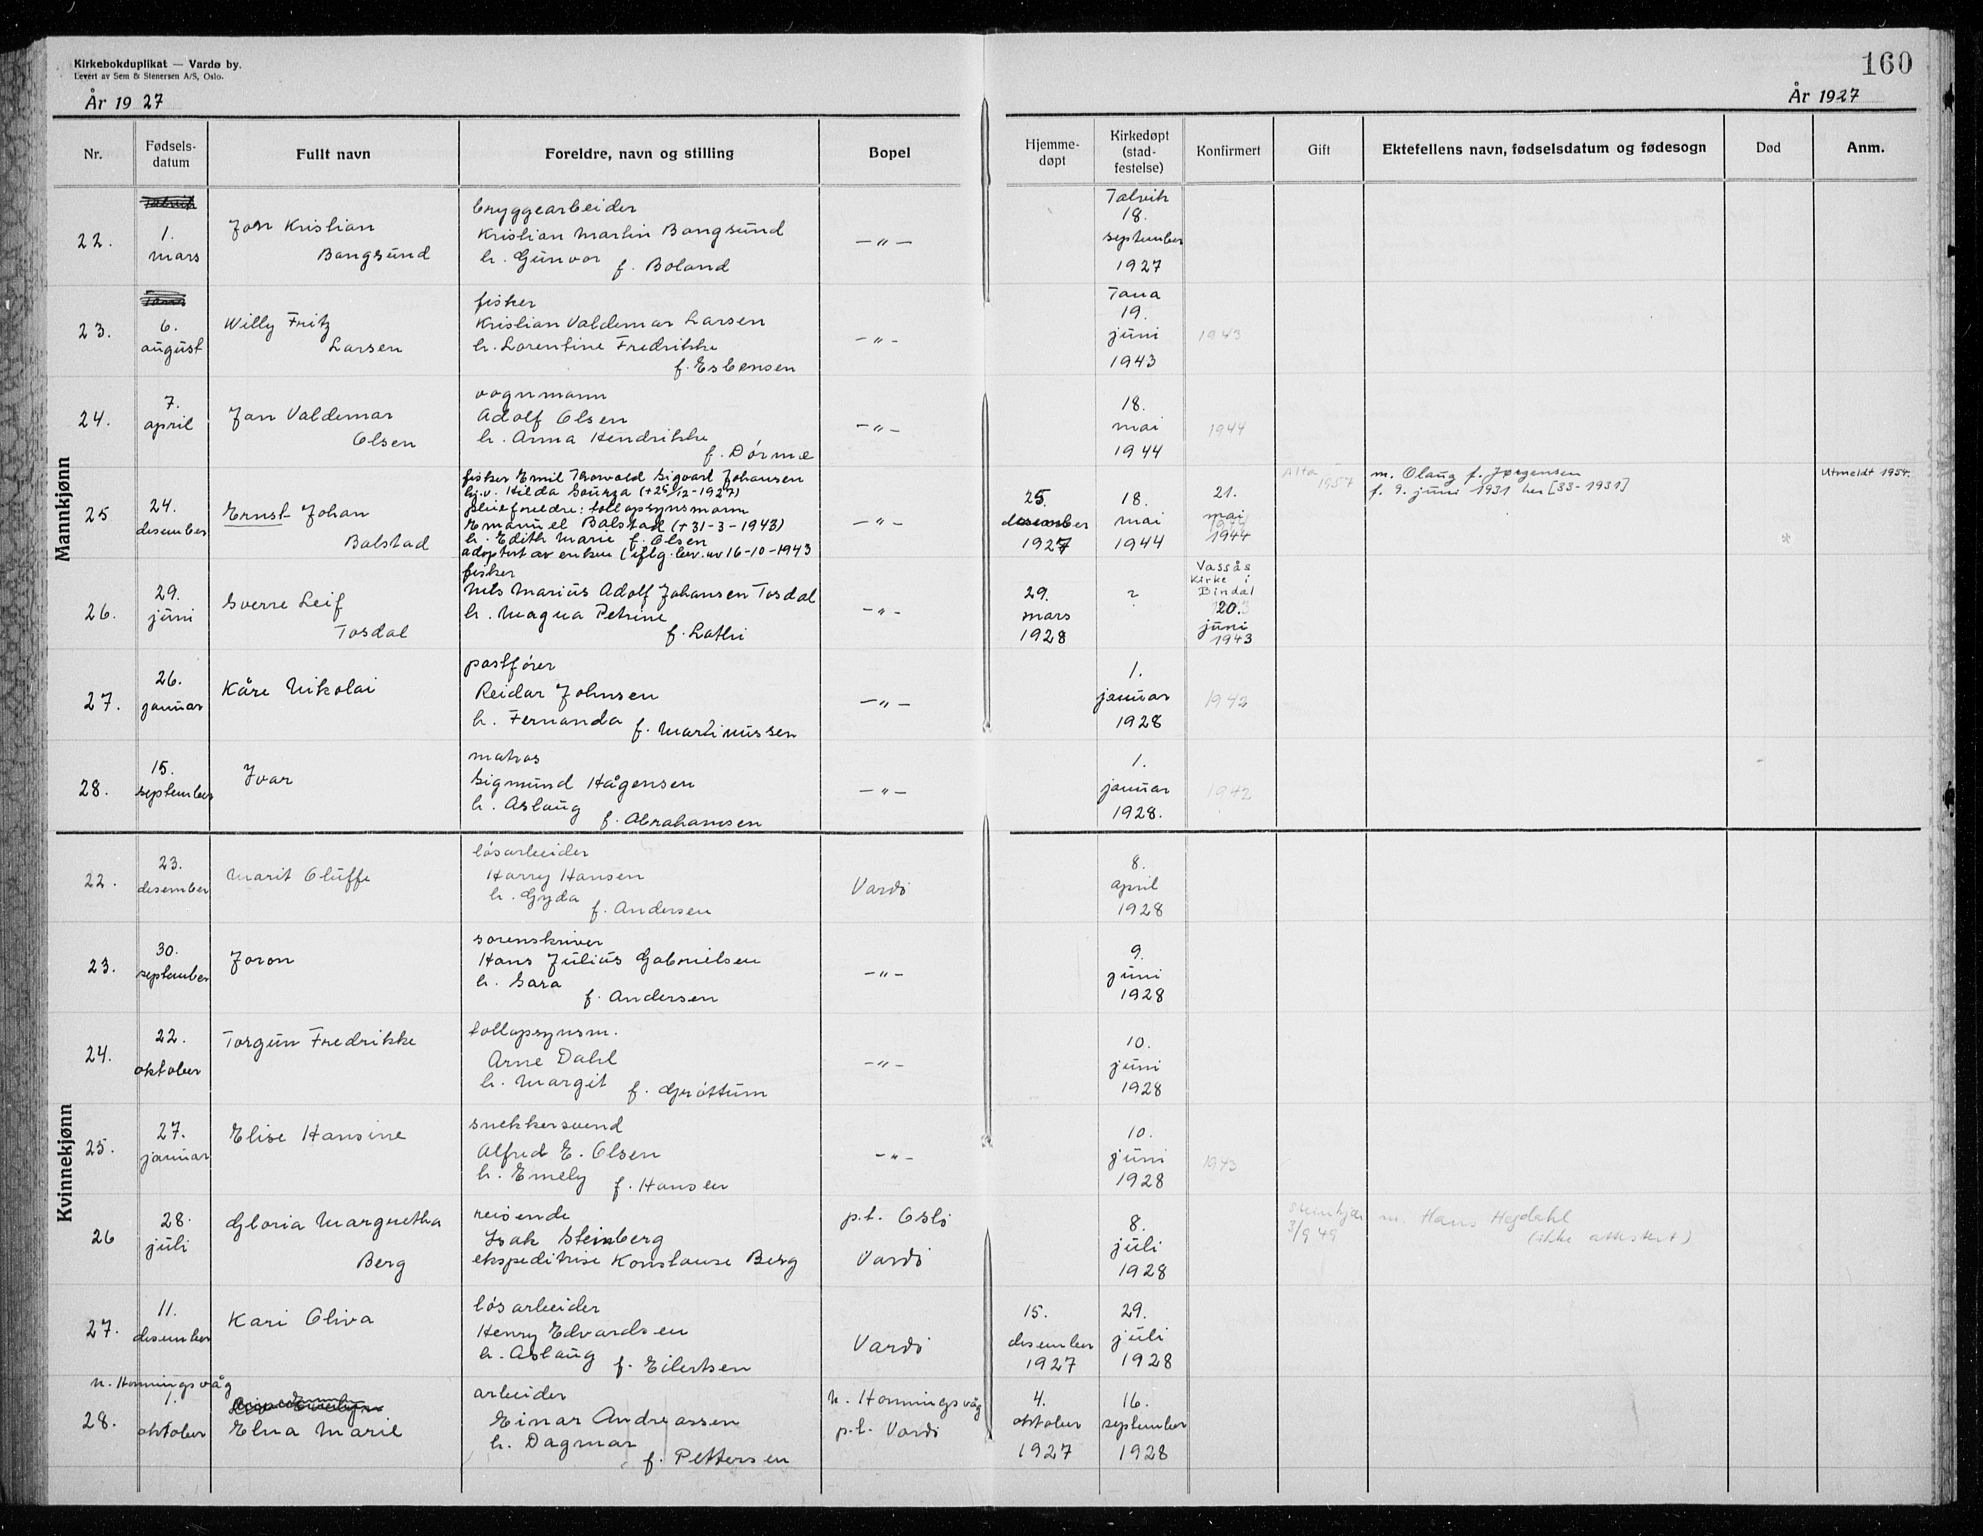 Kirkebokduplikat — Vardø by.
Levert av Sem & Stenersen A/S, Oslo.
År 1927
160
År 1927
Nr.
Fødsels-
datum
Fullt navn
Foreldre, navn og stilling
Bopel
Hjemme-
døpt
Kirkedøpt
(stad-
festelse)
Konfirmert
Gift
Ektefellens navn, fødselsdatum og fødesogn
Død
Anm.
Mannkjønn
22.
1.
mars
Jon Kristian
Bangsund
bryggearbeider
Kristian Martin Bangsund
h. Gunvor f. Boland
—„—
Talvik
18.
september
1927
23.
6.
august
Willy Fritz
Larsen
fisker
Kristian Valdemar Larsen
h. Lorentine Fredrikke
f. Esbensen
—„—
Tana
19.
juni
1943
1943
24.
7.
april
Jan Valdemar
Olsen
vognmann
Adolf Olsen
h. Anna Hendrikke
f. Dørmæ
—„—
18.
mai
1944
1944
25
24.
desember
Ernst Johan
Balstad
fisker Emil Thorvald Sigvart Johansen
hj.v. Hilda Sourza (+25/12-1927)
pleieforeldre: tollopsynsmann
Emanuel Balstad (+31-3-1943)
h. Edith Marie f. Olsen
adoptert av enken (iflg. bev. av 16-10-1943
—„—
25.
desember
1927
18.
mai
1944
21.
mai
1944
Alta
1957
m. Olaug f. Jørgensen
f. 9. juni 1931 her [33-1931]
Utmeldt 1954.
26.
29.
juni
Sverre Leif
Tosdal
fisker
Nils Marius Adolf Johansen Tosdal
h. Magna Petrine
f. Lathi
—„—
29.
mars
1928
?
Vassås
Kirke i
Bindal
20.
juni
1943
27.
26.
januar
Kåre Nikolai
postfører
Reidar Johnsen
h. Fernanda f. Martinussen
—„—
1.
januar
1928
1942
28.
15.
september
Ivar
matros
Sigmund Hågensen
h. Aslaug f. Abrahamsen
—„—
1.
januar
1928.
1942
Kvinnekjønn
22.
23.
desember
Marit Oluffe
løsarbeider
Harry Hansen
h. Gyda
f. Andersen
Vardø
8.
april
1928
23.
30.
september
Joron
sorenskriver
Hans Julius Gabrielsen
h. Sara
f. Andersen
—„—
9.
juni
1928
24.
22.
oktober
Torgun Fredrikke
tollopsynsm.
Arne Dahl
h. Margit f. Grøttum
—„—
10.
juni
1928
25.
27.
januar
Elise Hansine
snekkersvend
Alfred E. Olsen
h. Emely f. Hansen
—„—
10.
juni
1928
1943
26
28.
juli
Gloria Margretha
Berg
reisende
Isak Steinberg
ekspeditrise Konstanse Berg
p.t. Oslo
Vardø
8.
juli
1928
Steinkjer
3/9 49
m. Hans Hegdahl
(ikke attestert)
27.
11.
desember
Kari Oliva
løsarbeider
Henry Edvardsen
h. Aslaug f. Eilertsen
Vardø
15.
desember
1927
29.
juli
1928
28.
n. Honningsvåg
1.
oktober
Elna Marie
arbeider
Einar Andreassen
h. Dagmar
f. Pettersen
n. Honningsvåg
p.t. Vardø
4.
oktober
1927
16.
september
1928